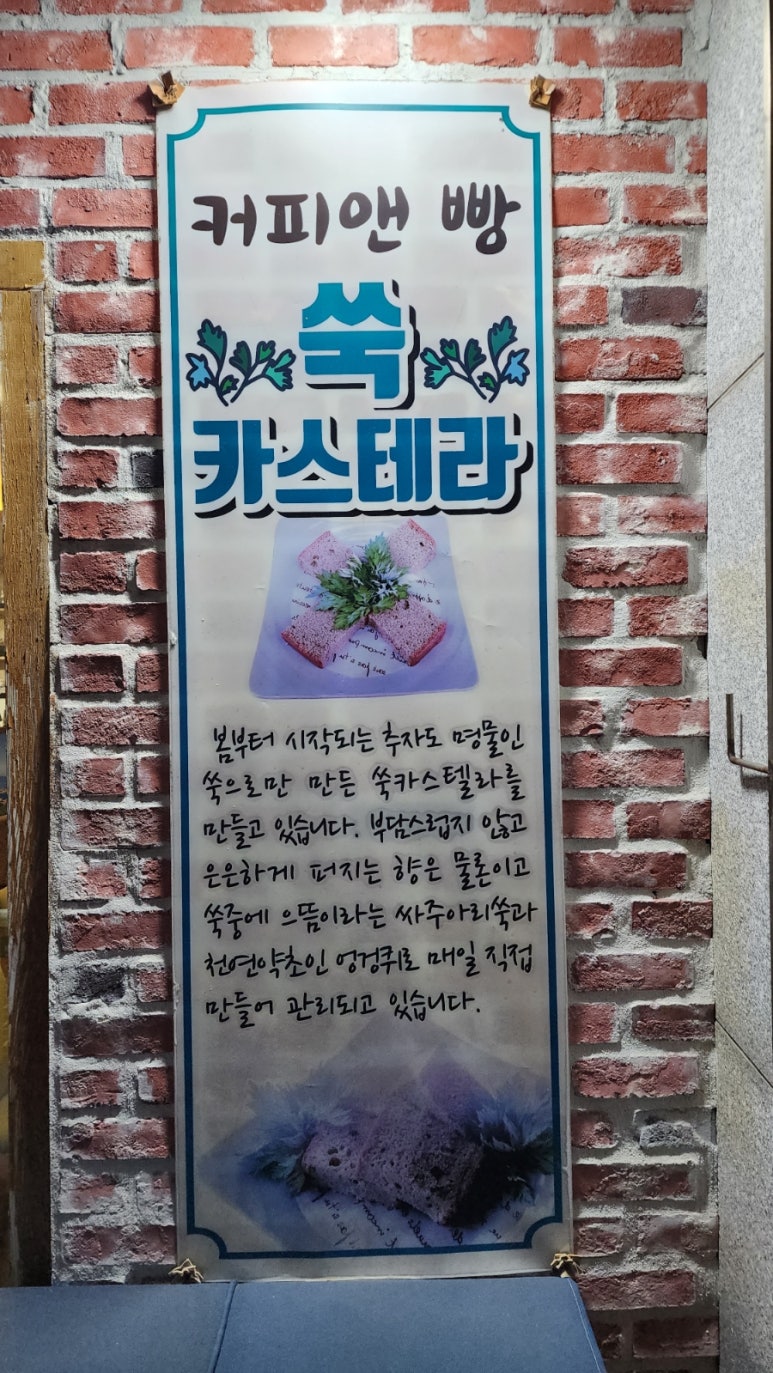 커피앤 빵
쑥
카스테라
봄부터 시작되는 추자도 명물인
쑥으로만 만든 쑥카스텔라를
만들고 있습니다. 부담스럽지 않고
은은하게 퍼지는 향은 물론이고
쑥중에 으뜸이라는 싸주아리쑥과
천연약초인 엉겅퀴로 매일 직접
만들어 관리되고 있습니다.